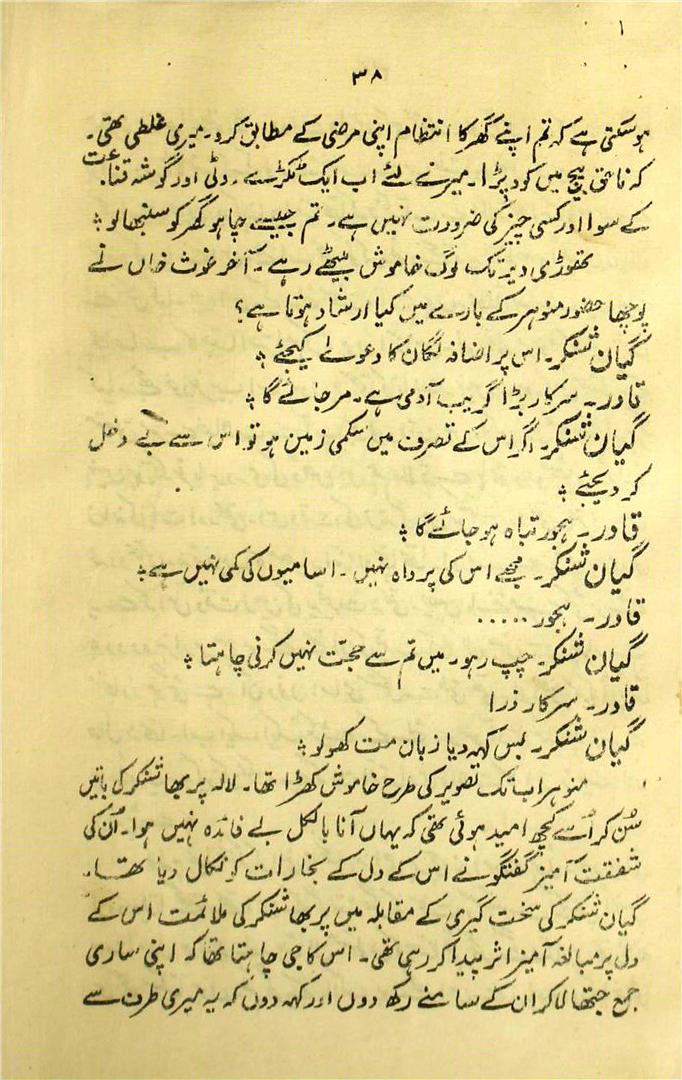 ۳۸
ہوسکتی ہے کہ تم اپنے گھر کا انتظام اپنی مرضی کے مطابق کرو۔ میری غلطی تھی۔
کہ ناحق بیچ میں کود پڑا۔ میرے لئے اب ایک ٹکڑے۔ روٹی اور گوشہ قناعت
کے سوا اور کسی چیز کی ضرورت نہیں ہے۔ تم جیسے چاہو گھر کو سنبھالو ۔
تھوڑی دیر تک لوگ خاموش بیٹھے رہے۔ آخر غوث خاں نے
پوچھا حضور منوہر کے بارے میں کیا ارشاد ہوتا ہے؟
گیان شنکر۔ اس پر اضافہ لگان کا دعوےٰ کیجئے ۔
قادر۔ سرکار بڑا گریب آدمی ہے۔ مر جائے گا ۔
گیان شنکر۔ اگر اس کے تصرف میں سکمی زمین ہو تو اس سے بے دخل
کر دیجئے ۔
قادر۔ ہجور تباہ ہو جائے گا ۔
گیان شنکر۔ مجھے اس کی پرواہ نہیں۔ اسامیوں کی کمی نہیں ہے ۔
قادر۔ ہجور ......
گیان شنکر۔ چپ رہو۔ میں تم سے حجت نہیں کرنی چاہتا ۔
قادر۔ سرکار ذرا
گیان شنکر۔ بس کہہ دیا زبان مت کھولو ۔
منوہر اب تک تصویر کی طرح خاموش کھڑا تھا۔ لالہ پربھا شنکر کی باتیں
سُن کر اُسے کچھ امید ہوئی تھی کہ یہاں آنا بالکل بے فائدہ نہیں ہوا۔ اُن کی
شفقت آمیز گفتگو نے اس کے دل کے بخارات کو نکال دیا تھا۔
گیان شنکر کی سخت گیری کے مقابلہ میں پربھا شنکر کی ملائمت اس کے
دل پر مبالغہ آمیز اثر پیدا کر رہی تھی۔ اس کا جی چاہتا تھا کہ اپنی ساری
جمع جتھا لا کر ان کے سامنے رکھ دوں اور کہہ دوں کہ یہ میری طرف سے